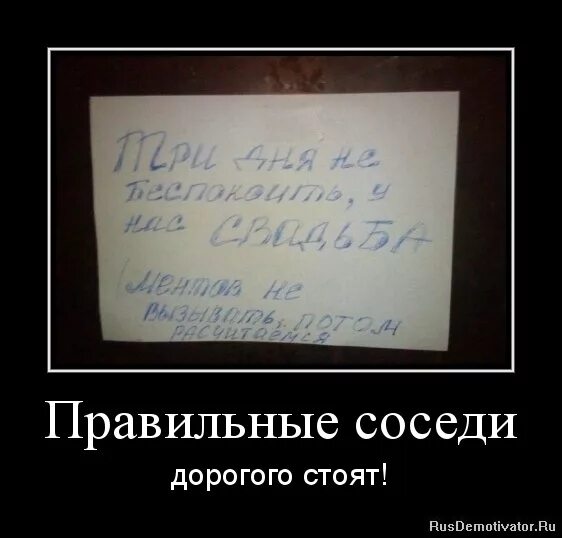 Три дня не
беспокоить, у
нас СВАДЬБА
Ментов не
вызывать, потом
расчитаемся
Правильные соседи
дорогого стоят!
RusDemotivator.Ru